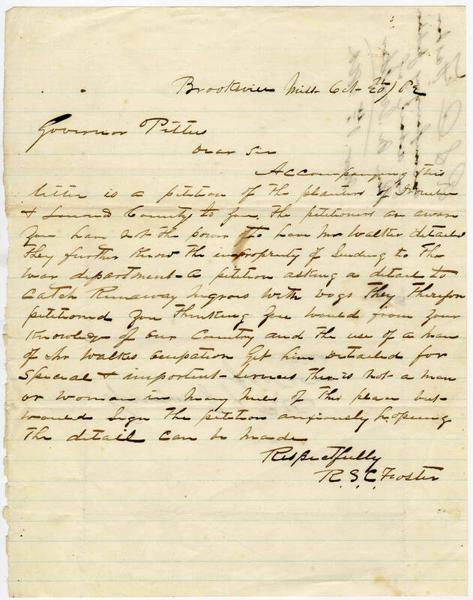 Brooksvill Miss Oct 20/62
Governor Pettus
Dear Sir
Accompanying this
letter is a petition of the planters of Noxubee
& Lownd County to you. The petitioners ar awar
you hav not the power to hav Mr Walker detailed
They further know the impropriety of sending to the
war department a petition asking a detail to
catch Runaway negroes with dogs They therefore
petitioned you thinking you would from your
Knowledge of our Country and the use of a man
of Mr Walkers ocupation Get him Detailed for
Special & important services there is not a man
or woman in many miles of this place but
would sign the petition anxiously hopeing
The detail can be made
Respectfully
R. S. C. Foster